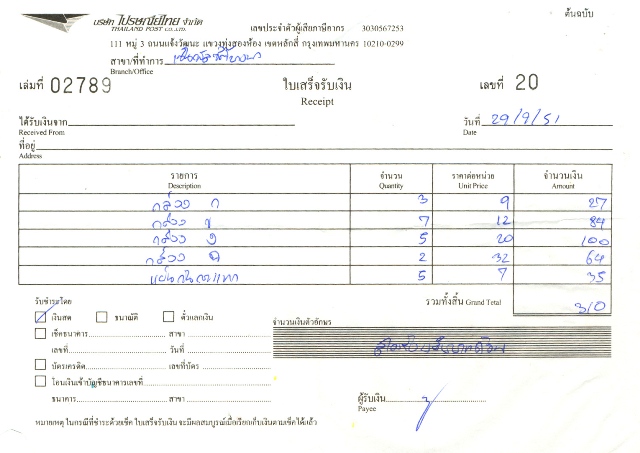 ต้นฉบับ
บริษัท ไปรษณีย์ไทย จำกัด
THAILAND POST CO.,LTD.
เลขประจำตัวผู้เสียภาษีอากร 3030567253
111 หมู่ 3 ถนนแจ้งวัฒนะ แขวงทุ่งสองห้อง เขตหลักสี่ กรุงเทพมหานคร 10210-0299
สาขา/ที่ทำการ
Branch/Office
เล่มที่ 02789 ใบเสร็จรับเงิน เลขที่ 20
Receipt
ได้รับเงินจาก วันที่ 29/9/51
Received From Date
ที่อยู่
Address
รายการ จำนวน ราคาต่อหน่วย จำนวนเงิน
Description Quantity Unit Price Amount
กล่อง ก 3 9 27
กล่อง ข 7 12 84
กล่อง ง 5 20 100
กล่อง 2 32 64
แผ่นกันกระแทก 5 7 35
รวมทั้งสิ้น Grand Total 310
รับชำระโดย
เงินสด ธนาณัติ ตั๋วแลกเงิน จำนวนเงินตัวอักษร
เช็คธนาคาร สาขา
เลขที่ วันที่ สามร้อยสิบบาทถ้วน
บัตรเครดิต เลขที่บัตร
โอนเงินเข้าบัญชีธนาคารเลขที่
ธนาคาร สาขา
ผู้รับเงิน
Payee
หมายเหตุ ในกรณีที่ชำระด้วยเช็ค ใบเสร็จรับเงิน จะมีผลสมบูรณ์เมื่อเรียกเก็บเงินตามเช็คได้แล้ว